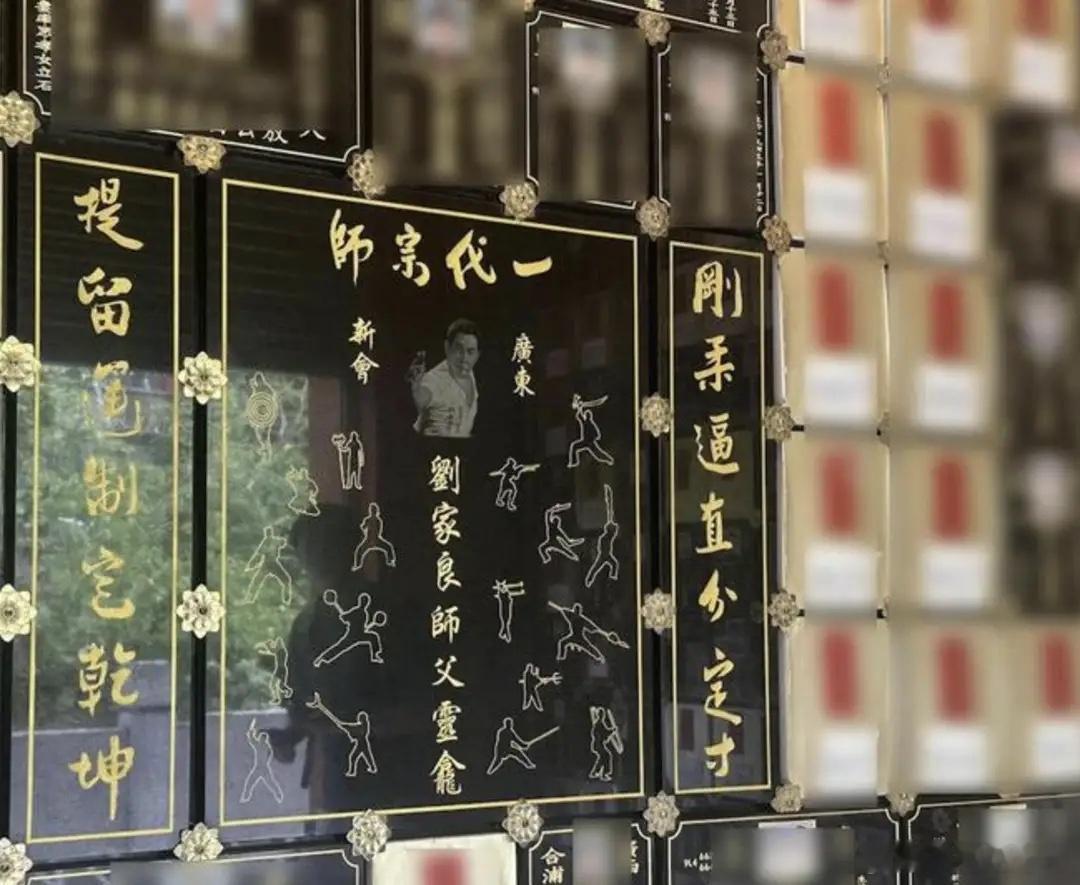 一代宗師
剛柔逼直分定寸
廣東
新會
劉家良師父靈龕
提留運制定乾坤
孝女立石
合浦